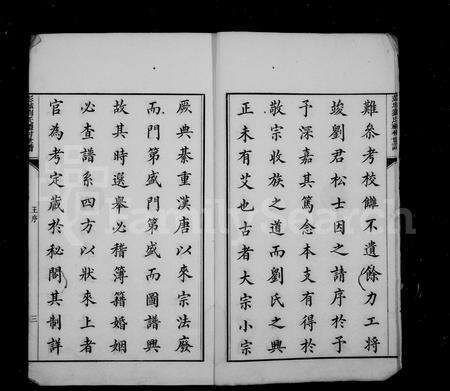 難參考校讎不遺餘力工將
竣劉君松士因之請序於予
予深嘉其篤念本支有得於
敬宗收族之道而劉氏之興
正未有艾也古者大宗小宗
厥典綦重漢唐以來宗法廢
而門第盛門第盛而圖譜興
故其時選舉必稽簿籍婚姻
必查譜系四方以狀來上者
官為考定藏於秘閣其制詳
王序
三
FamilySearch